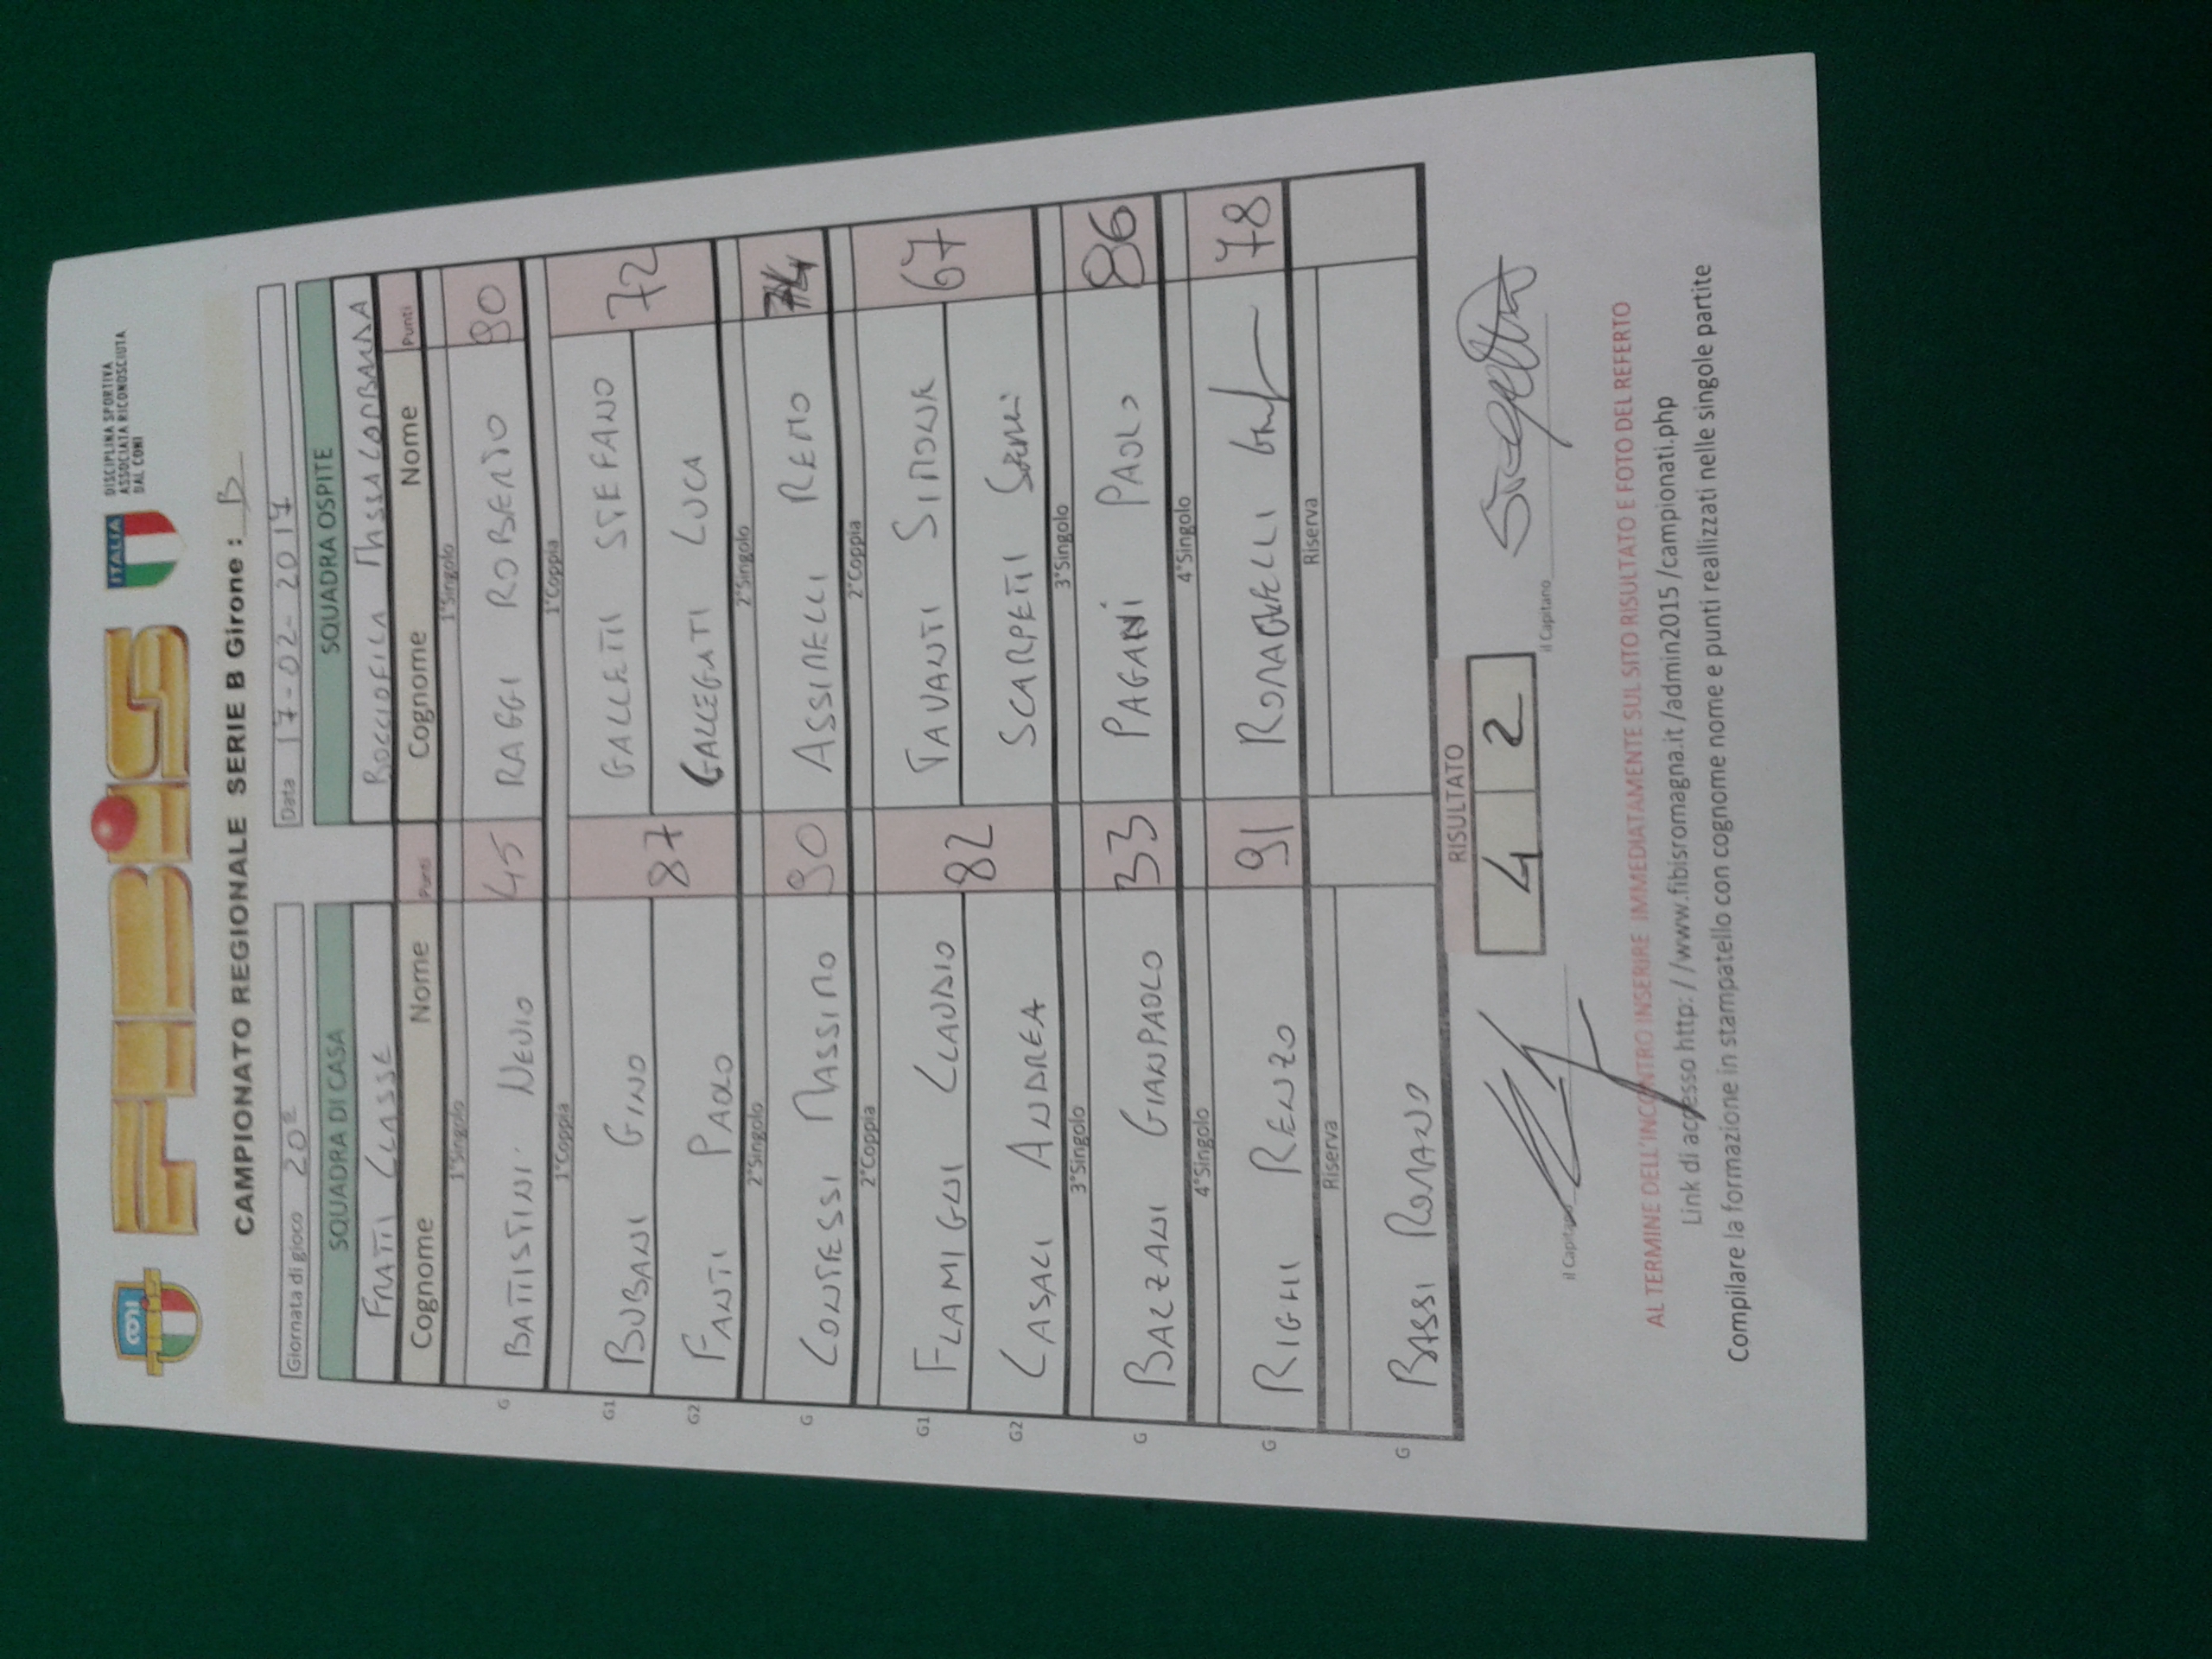 CONI
FIBIS
FIBiS
ITALIA
DISCIPLINA SPORTIVA
ASSOCIATA RICONOSCIUTA
DAL CONI
CAMPIONATO REGIONALE SERIE B Girone : B
Giornata di gioco 20ª
Data 17-02-2017
SQUADRA DI CASA SQUADRA OSPITE
FRATI CLASSE BOCCIOFILA MASSALOMBARDA
Cognome Nome Punti Cognome Nome Punti
1°Singolo 1°Singolo
G BATTISTINI NEVIO 45 RAGGI ROBERTO 90
1°Coppia 1°Coppia
G1 BUBANI GINO 87 GALLETTI STEFANO 72
G2 FANTI PAOLO GALLEGATI LUCA
2°Singolo 2°Singolo
G CONTESSI MASSIMO 90 ASSIRELLI REMO
2°Coppia 2°Coppia
G1 FLAMIGNI CLAUDIO 82 TAVANTI SIMONA 67
G2 CASALI ANDREA SCARPETTI
3°Singolo 3°Singolo
G BALZANI GIANPAOLO 33 PAGANI PAOLO 86
4°Singolo 4°Singolo
G RIGHI RENZO 91 ROMAGNOLI 78
Riserva Riserva
G BASSI ROMANO
RISULTATO
4 2
il Capitano il Capitano
AL TERMINE DELL'INCONTRO INSERIRE IMMEDIATAMENTE SUL SITO RISULTATO E FOTO DEL REFERTO
Link di accesso http: / /www.fibisromagna.it /admin2015 /campionati.php
Compilare la formazione in stampatello con cognome nome e punti reallizzati nelle singole partite